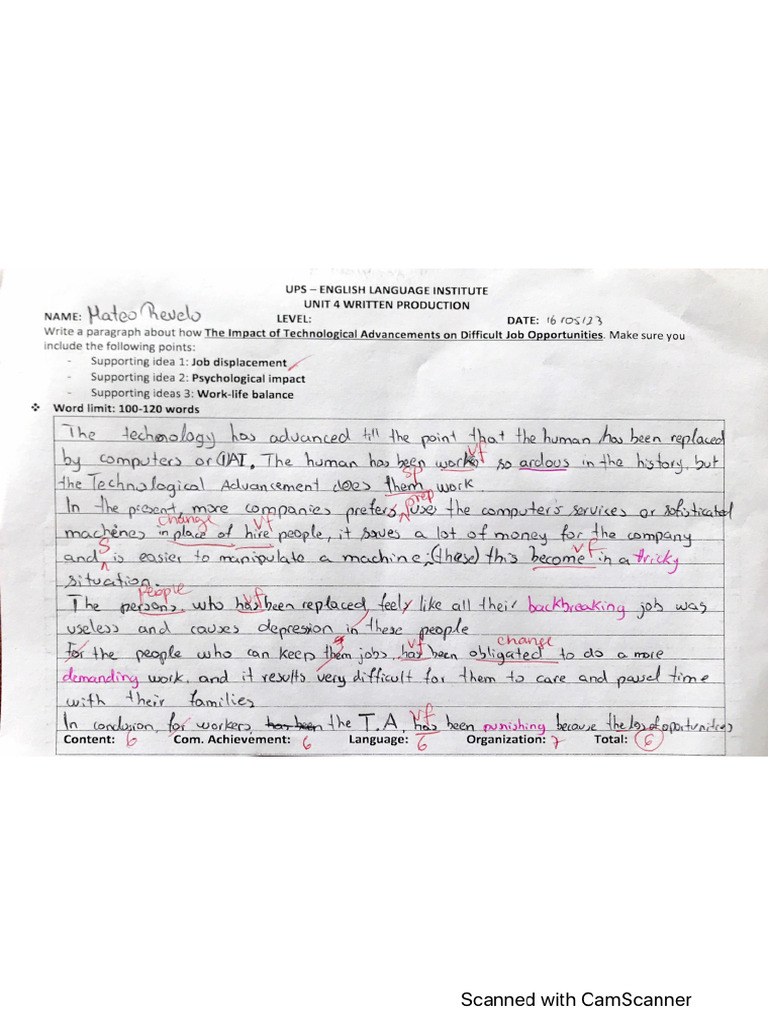 UPS – ENGLISH LANGUAGE INSTITUTE
UNIT 4 WRITTEN PRODUCTION
NAME: Mateo Revelo LEVEL: DATE: 16/05/23
Write a paragraph about how The Impact of Technological Advancements on Difficult Job Opportunities. Make sure you
include the following points:
- Supporting idea 1: Job displacement
- Supporting idea 2: Psychological impact
- Supporting ideas 3: Work-life balance
❖ Word limit: 100-120 words
The technology has advanced till the point that the human has been replaced
vf
by computers or AI. The human has been worked so ardous in the history, but
sp
the Technological Advancement does them work
prep
In the present, more companies prefers use the computer's services or sofisticated
change vf
machenes in place of hire people, it saves a lot of money for the company
s vf
and is easier to manipulate a machine, (these) this become in a tricky
situation.
people vf
The persons, who has been replaced, feely like all their backbreaking job was
useless and causes depression in these people
vf change
for the people who can keep them jobs, has been obligated to do a more
demanding work, and it results very difficult for them to care and passed time
with their families
vf
In conclusion, for workers, has been the T.A, has been punishing because the los of opportunities
Content: 6 Com. Achievement: 6 Language: 6 Organization: 7 Total: 6
Scanned with CamScanner